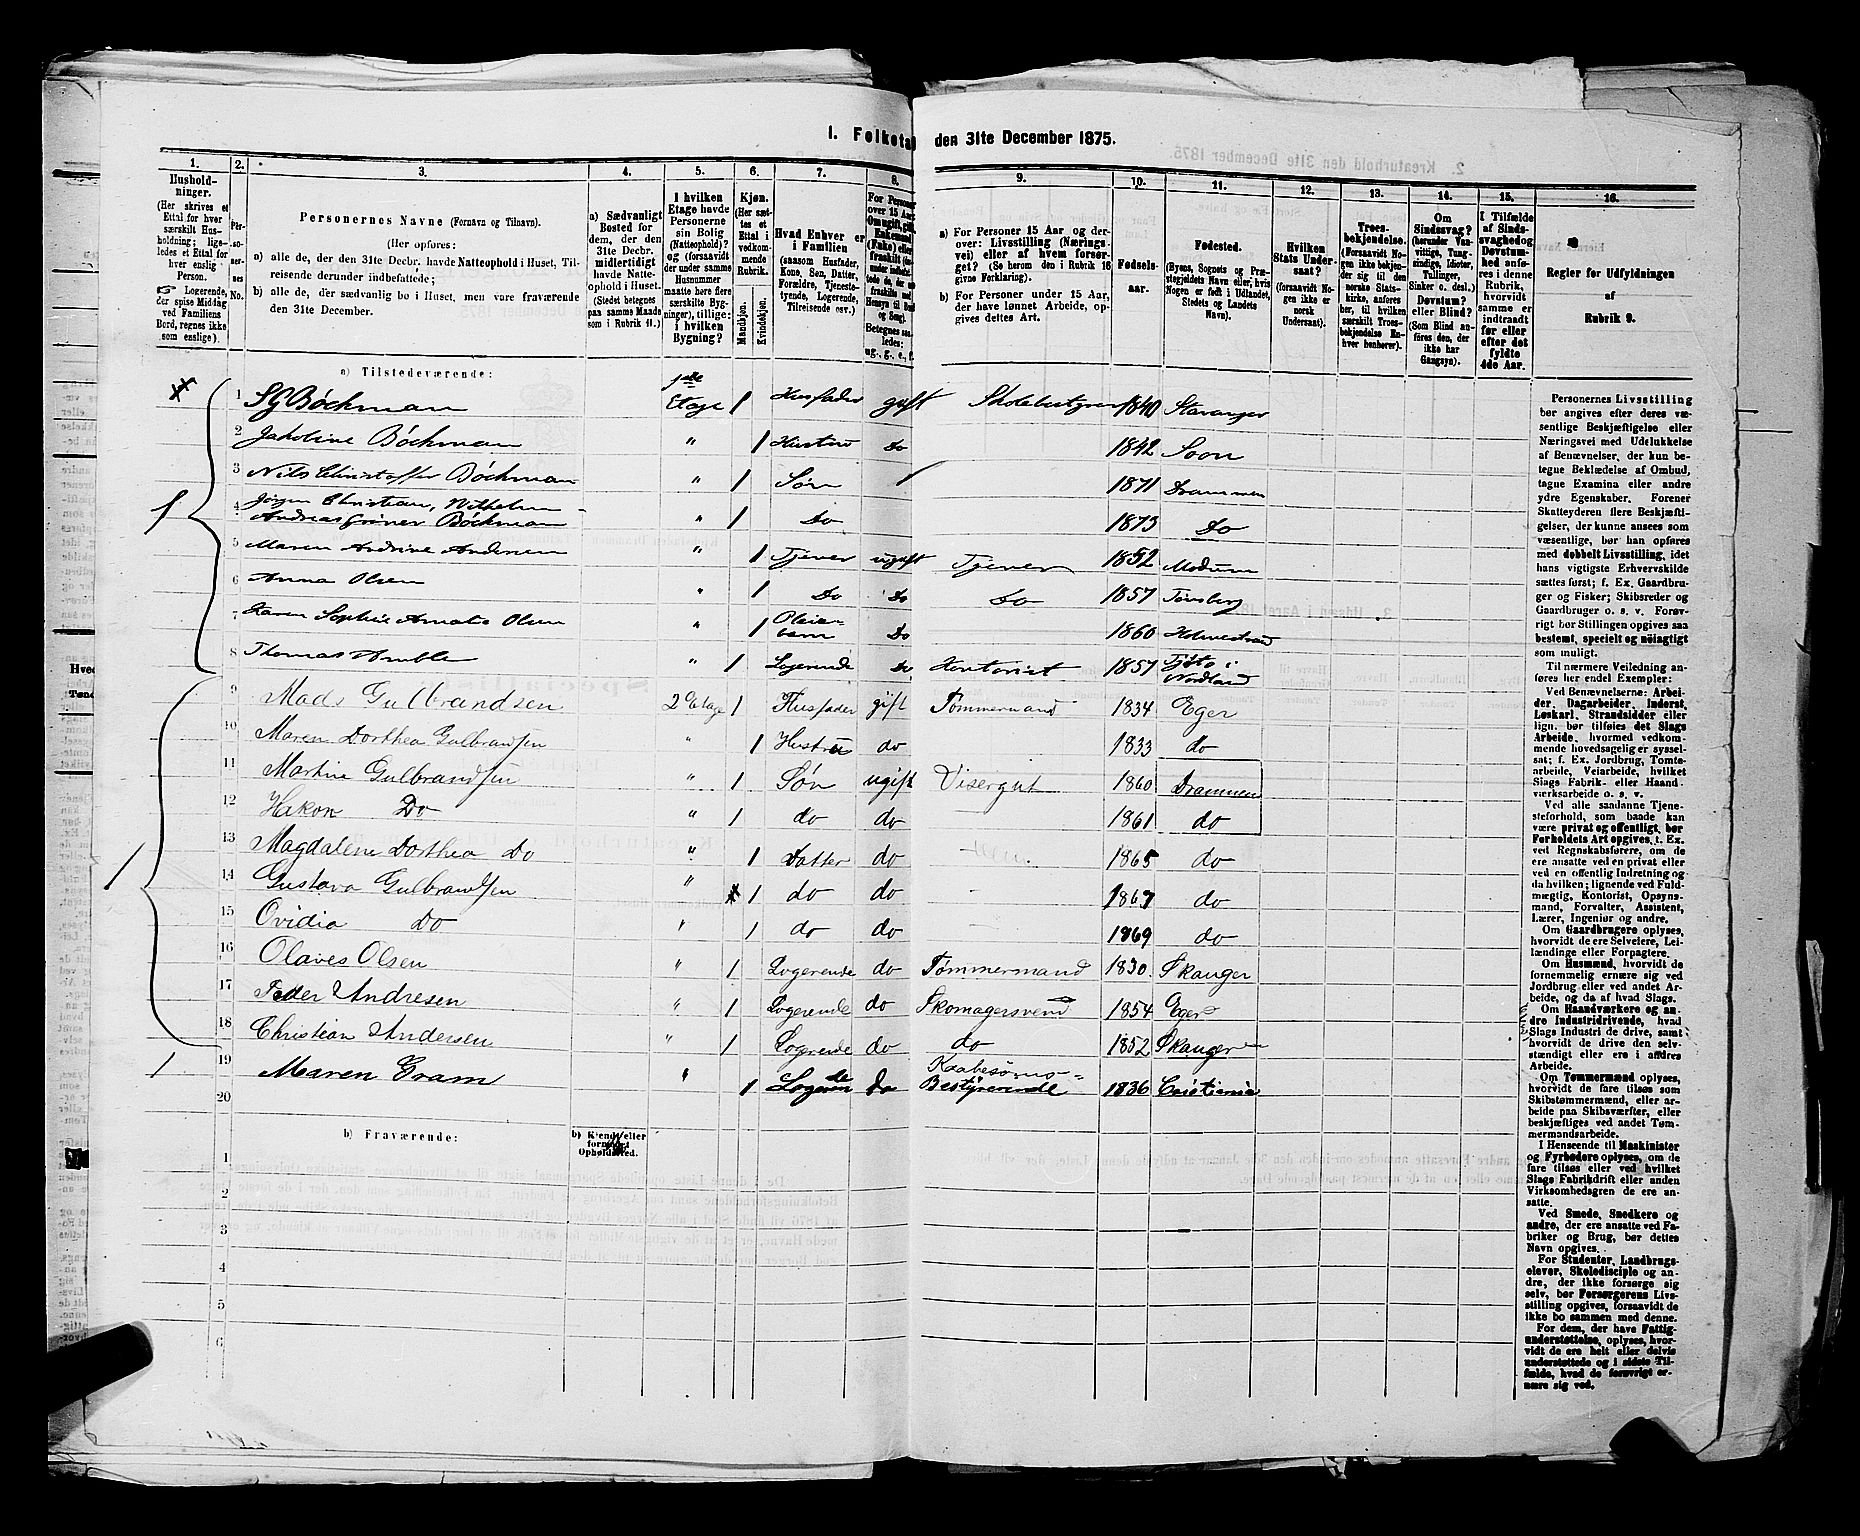 1. Folketal den 31te December 1875.
1. 2. 3. 4. 5. 6. 7. 8. 9. 10. 11. 12. 13. 14. 15. 16.
Husholdninger. (Her skrives et Ettal for hver særskilt Husholdning; ligeledes et Ettal for hver enslig Person. Logerende, der spise Middag ved Familiens Bord, regnes ikke som enslige).
Personernes No.
Personernes Navne (Fornavn og Tilnavn).
(Her opføres:
a) alle de, der den 31te Decbr. havde Natteophold i Huset, Tilreisende derunder indbefattede;
b) alle de, der sædvanlig bo i Huset, men vare fraværende den 31te December.
a) Sædvanligt Bosted for dem, der den 31te Decbr. midlertidigt havde Natteophold i Huset. (Stedet betegnes paa samme Maade som i Rubrik 11.)
I hvilken Etage havde Personerne sin Bolig (Natteophold)? og (forsaavidt der under samme Husnummer maatte høre flere særskilte Bygninger), tillige: i hvilken Bygning?
Kjøn. (Her sættes et Ettal i vedkommende Rubrik. Mandkjøn. Kvindekjøn.
Hvad Enhver er i Familien (saasom Husfader, Kone, Søn, Datter, Forældre, Tjenestetyende, Logerende, Tilreisende osv.)
a) For Personer 15 Aar og derover: Livsstilling (Næringsvei) eller af hvem forsørget? (Se herom den i Rubrik 16 givne Forklaring).
b) For Personer under 15 Aar, der have lønnet Arbeide, opgives dettes Art.
Fødselsaar.
Fødested. (Byens, Sognets og Præstegjeldets Navn eller, hvis Nogen er født i Udlandet, Stedets og Landets Navn).
Hvilken Stats Undersaat? (forsaavidt Nogen ikke er norsk Undersaat).
Troesbekjendelse. (Forsaavidt Nogen ikke bekjender sig til den norske Statskirke, anføres her, til hvilken særskilt Troesbekjendelse Enhver henhører).
Om Sindssvag? (herunder Vanvittige, Tungsindige, Idioter, Tullinger, Sinker o. desl.) Døvstum? eller Blind? (Som Blind anføres den, der ikke har Gangsyn).
I Tilfælde af Sindssvaghed og Døvstumhed anføres i denne Rubrik, hvorvidt samme er indtraadt før eller efter det fyldte 4de Aar.
Regler for Udfyldningen af Rubrik 9.
a) Tilstedeværende:
1 SG Bøchman 1ste Etage 1 Husfader gift Skolebestyrer 1840 Stavanger
2 Jakobine Bøchman " 1 Hustru Do 1842 Soon
3 Nils Christoffer Bøchman " 1 Søn 1871 Drammen
4 Jørgen Christian, Vilhelm
Andreas Grüner Bøchman " 1 Do 1873 Do
5 Maren Andrine Andersen " 1 Tjener ugift Tjener 1852 Modum
6 Anna Olsen " 1 Do Do Do 1857 Tønsberg
7 Karen Sophie Amalie Olsen " 1 Pleiebarn Do 1860 Holmestrand
8 Thomas " 1 Logerende Do Kontorist 1857 Tjøtø i Nordland
9 Mads Gulbrandsen 2 Etage 1 Husfader gift Tømmermand 1834 Eger
10 Maren Dorthea Gulbrandsen " 1 Hustru do 1833 do
11 Martine Gulbrandsen " 1 Søn ugift Visergut 1860 Drammen
12 Hakon Do " 1 do do 1861 do
13 Magdalene Dorthea Do " 1 Datter do 1865 do
14 Gustava Gulbrandsen " 1 do do 1867 do
15 Ovidia Do " 1 do do 1869 do
16 Olaves Olsen " 1 Logerende do Tømmermand 1830. Skauger
17 Peder Andresen " 1 Logerende do Skomagersvend 1854 Eger
18 Christian Andersen " 1 Logerende do do 1852 Skauger
19 Maren Gram " 1 Logerende Do Bestyrerende 1836 Cristiania
20
b) Fraværende: b) Kjendt eller formodet Opholdssted.
1
2
3
4
5
6
Personernes Livsstilling bør angives efter deres væsentlige Beskjæftigelse eller Næringsvei med Udelukkelse af Benævnelser, der kun betegne Beklædelse af Ombud, tagne Examina eller andre ydre Egenskaber. Forener Skatteyderen flere Beskjæftigelser, der kunne ansees som væsentlige, bør han opføres med dobbelt Livsstilling, idet hans vigtigste Erhvervskilde sættes først; f. Ex. Gaardbruger og Fisker; Skibsreder og Gaardbruger o. s. v. Forøvrigt bør Stillingen opgives saa bestemt, specielt og nøiagtigt som muligt.
Til nærmere Veiledning anføres her endel Exempler:
Ved Benævnelserne: Arbeider, Dagarbeider, Inderst, Løskarl, Strandsidder eller lign. bør tilføies det Slags Arbeide, hvormed vedkommende hovedsagelig er sysselsat; f. Ex. Jordbrug, Tomtearbeide, Veiarbeide, hvilket Slags Fabrik- eller Haandværksarbeide o. s. v.
Ved alle saadanne Tjenesteforhold, som baade kan være privat og offentligt, bør Forholdets Art opgives, t. Ex. ved Regnskabsførere, om de ere ansatte ved en privat eller ved en offentlig Indretning og da hvilken; lignende ved Fuldmægtig, Kontorist, Opsynsmand, Forvalter, Assistent, Lærer, Ingeniør og andre.
Om Gaardbrugere oplyses, hvorvidt de ere Selveiere, Leilændinge eller Forpagtere.
Om Husmænd, hvorvidt de fornemmelig ernære sig ved Jordbrug eller ved andet Arbeide, og da af hvad Slags.
Om Haandværkere og andre Industridrivende, hvad Slags Industri de drive, samt hvorvidt de drive den selvstændigt eller ere i andres Arbeide.
Om Tømmermænd oplyses, hvorvidt de fare tilsøs som Skibstømmermænd, eller arbeide paa Skibsværfter, eller beskjæftiges ved andet Tømmermandsarbeide.
I Henseende til Maskinister og Fyrbødere oplyses, om de fare tilsøs eller ved hvilket Slags Fabrikdrift eller anden Virksomhedsgren de ere ansatte.
Ved Smede, Snedkere og andre, der ere ansatte ved Fabriker og Brug, bør dettes Navn opgives.
For Studenter, Landbrugselever, Skoledisciple og andre, der ikke forsørge sig selv, bør Forsørgerens Livsstilling opgives, forsaavidt de ikke bo sammen med denne.
For dem, der have Fattigunderstøttelse, oplyses, hvorvidt de ere helt eller delvis understøttede og i sidste Tilfælde, hvad de forøvrigt ernære sig ved.